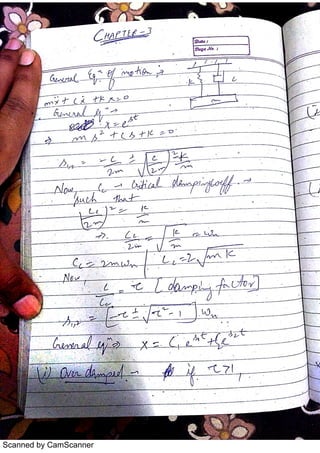 CHAPTER-3
Date :
Page No :
General Eqn of motion :→
k
c
m
mẍ + cẋ + kx = 0
General eqn →
x = e^st
⇒ ms² + cs + k = 0
s1,2 = -c/2m ± √((c/2m)² - k/m)
Now, Cc → Critical damping coeff. →
Such that
(Cc/2m)² = k/m
⇒ Cc/2m = √(k/m) = ωn
Cc = 2mωn | Cc = 2√mk
Now,
c/Cc = τ [damping factor]
s1,2 = [-τ ± √(τ² - 1)] ωn
General eqn ⇒ x = C1 e^s1t + C2 e^s2t
(i) Over damped → if τ>1,
Scanned by CamScanner